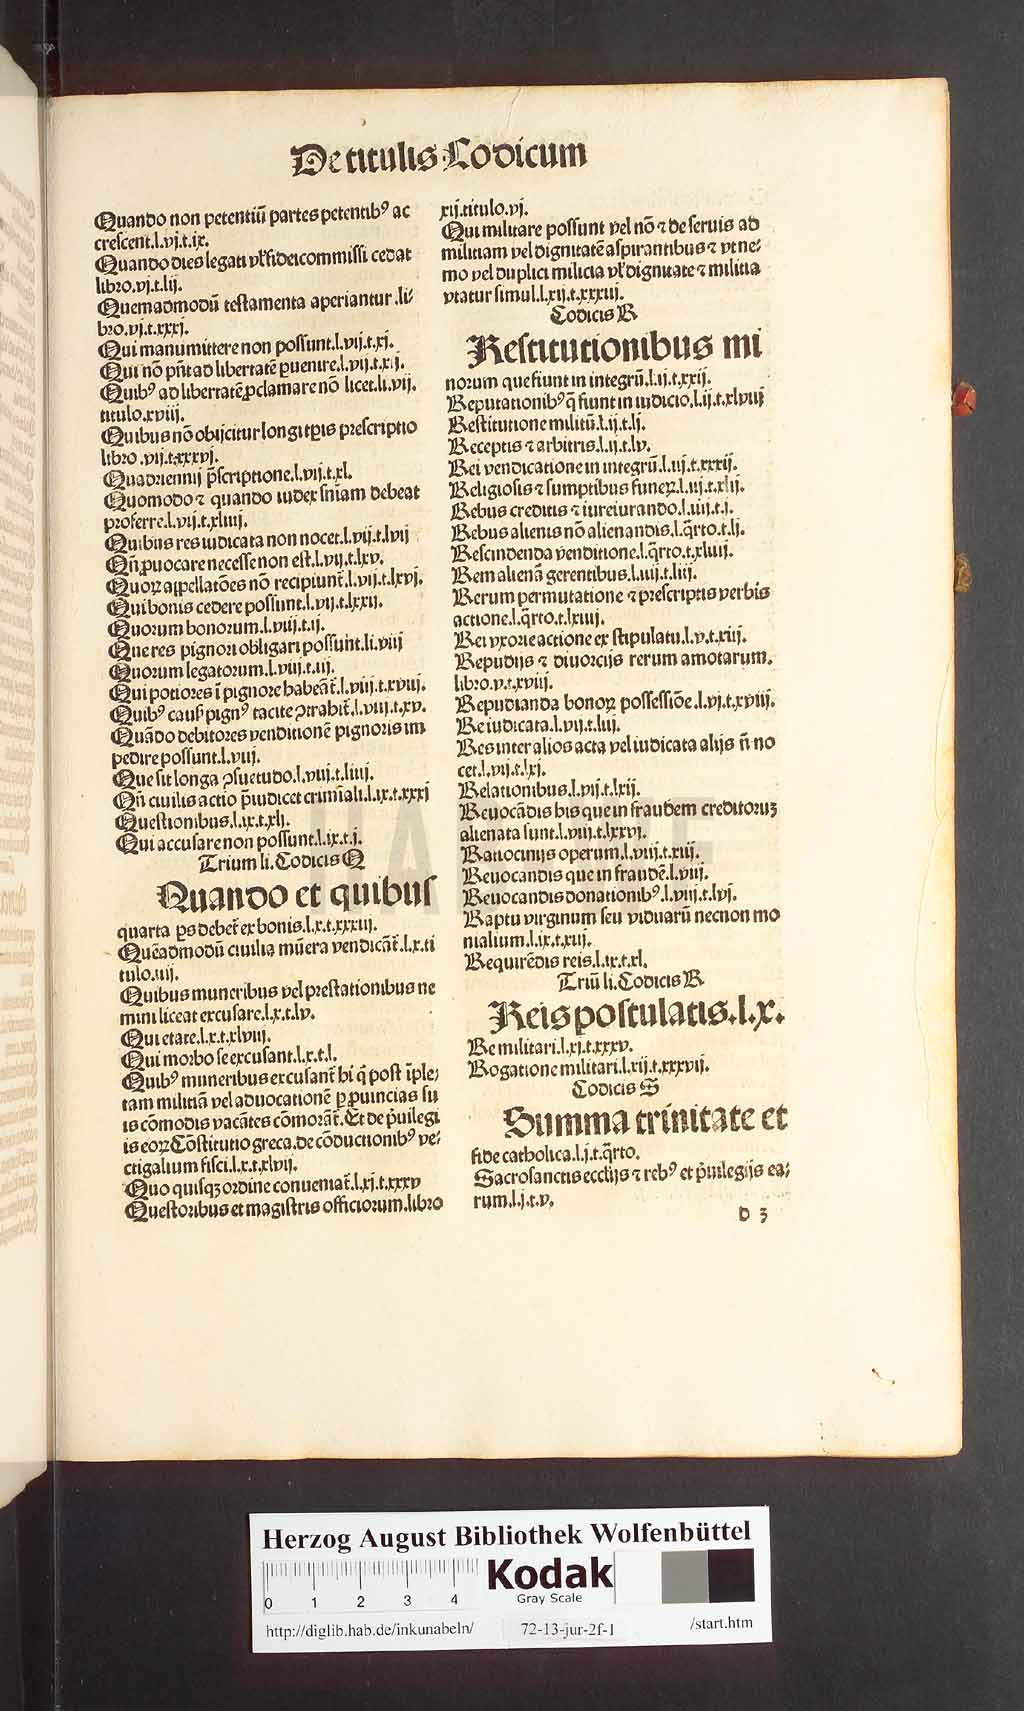 De titulis Codicum
Quando non petentiū partes petentibꝰ ac
crescent.l.vj.t.ix.
Quando dies legati vl̕ fideicommissi cedat
libro.vj.t.lij.
Quemadmodū testamenta aperiantur.li⸗
bro.vj.t.xxxj.
Qui manumittere non possunt.l.vij.t.xj.
Qui nō pn̄t ad libertatē ꝑuenire.l.vij.t.xij.
Quibꝰ ad libertatē ꝓclamare nō licet.li.vij.
titulo.xviij.
Quibus nō obijcitur longi tp̄is prescriptio
libro.vij.t.xxxvj.
Quadriennij p̄scriptione.l.vij.t.xl.
Quomodo ⁊ quando iudex sn̄iam debeat
proferre.l.vij.t.xliiij.
Quibus res iudicata non nocet.l.vij.t.lvij
Qn̄ ꝓuocare necesse non est.l.vij.t.lxv.
Quoꝝ appellatōes nō recipiunt̄.l.vij.t.lxvj.
Qui bonis cedere possunt.l.vij.t.lxxij.
Quorum bonorum.l.viij.t.ij.
Que res pignori obligari possunt.li.viij
Quorum legatorum.l.viij.t.iij.
Qui potiores ī pignore habeāt̄.l.viij.t.xviij.
Quibꝰ causꝭ pignꝰ tacite ꝯtrahit̄.l.viij.t.xv.
Quādo debitores venditionē pignoris im
pedire possunt.l.viij.
Que sit longa ꝯsuetudo.l.viij.t.liiij.
Qn̄ ciuilis actio p̄iudicet crimīali.l.ix.t.xxxj
Questionibus.l.ix.t.xlj.
Qui accusare non possunt.l.ix.t.j.
Trium li.Codicis Q
Quando et quibus
quarta ꝑs debet̄ ex bonis.l.x.t.xxxiij.
Quēadmodū ciuilia mūera vendicāt̄.l.x.ti
tulo.iiij.
Quibus muneribus vel prestationibus ne
mini liceat excusare.l.x.t.lv.
Qui etate.l.x.t.xlviij.
Qui morbo se excusant.l.x.t.l.
Quibꝰ muneribus excusant̄ hi q̄ post īple⸗
tam militiā vel aduocationē ꝑ ꝓuincias su
is cōmodis vacātes cōmorāt̄.Et de p̄uilegi
is eoꝝ Cōstitutio greca.de cōductionibꝰ ve⸗
ctigalium fisci.l.x.t.xlvij.
Quo quisqꝫ ordine conueniat̄.l.xj.t.xxxv
Questoribus et magistris officiorum.libro
xij.titulo.vj.
Qui militare possunt vel nō ⁊ de seruis ad
militiam vel dignitatē aspirantibus ⁊ vt ne⸗
mo vel duplici milicia vl̕ dignitate ⁊ militia
vtatur simul.l.xij.t.xxxiij.
Codicis R
Restitutionibus mi
norum que fiunt in integrū.l.ij.t.xxij.
Reputationibꝰ q̄ fiunt in iudicio.l.ij.t.xlviij
Restitutione militū.l.ij.t.lj.
Receptis ⁊ arbitris.l.ij.t.lv.
Rei vendicatione in integrū.l.iij.t.xxxij.
Religiosis ⁊ sumptibus funeꝝ.l.iij.t.xlij.
Rebus creditis ⁊ iureiurando.l.iiij.t.j.
Rebus alienis nō alienandis.l.q̄rto.t.lj.
Rescindenda venditione.l.q̄rto.t.xliiij.
Rem alienā gerentibus.l.iiij.t.liij.
Rerum permutatione ⁊ prescriptis verbis
actione.l.q̄rto.t.lxiiij.
Rei vxorie actione ex stipulatu.l.v.t.xiij.
Repudijs ⁊ diuorcijs rerum amotarum.
libro.v.t.xviij.
Repudianda bonoꝝ possessiōe.l.vj.t.xviij.
Re iudicata.l.vij.t.liij.
Res inter alios acta vel iudicata alijs n̄ no
cet.l.vij.t.lxj.
Relationibus.l.vij.t.lxij.
Reuocādis his que in fraudem creditoruꝫ
alienata sunt.l.viij.t.lxxvj.
Ratiocinijs operum.l.viij.t.xiij.
Reuocandis que in fraudē.l.viij.
Reuocandis donationibꝰ.l.viij.t.lvj.
Raptu virginum seu viduarū necnon mo
nialium.l.ix.t.xiij.
Requirēdis reis.l.ix.t.xl.
Triū li.Codicis R
Reis postulatis.l.x.
Re militari.l.xj.t.xxxv.
Rogatione militari.l.xij.t.xxxvij.
Codicis S
Summa trinitate et
fide catholica.l.j.t.q̄rto.
Sacrosanctis ecclijs ⁊ rebꝰ et p̄uilegijs ea⸗
rum.l.j.t.v.
D 3
HAB WF
Herzog August Bibliothek Wolfenbüttel
0 1 2 3 4
Kodak
Gray Scale
http://diglib.hab.de/inkunabeln/
72-13-jur-2f-1
/start.htm